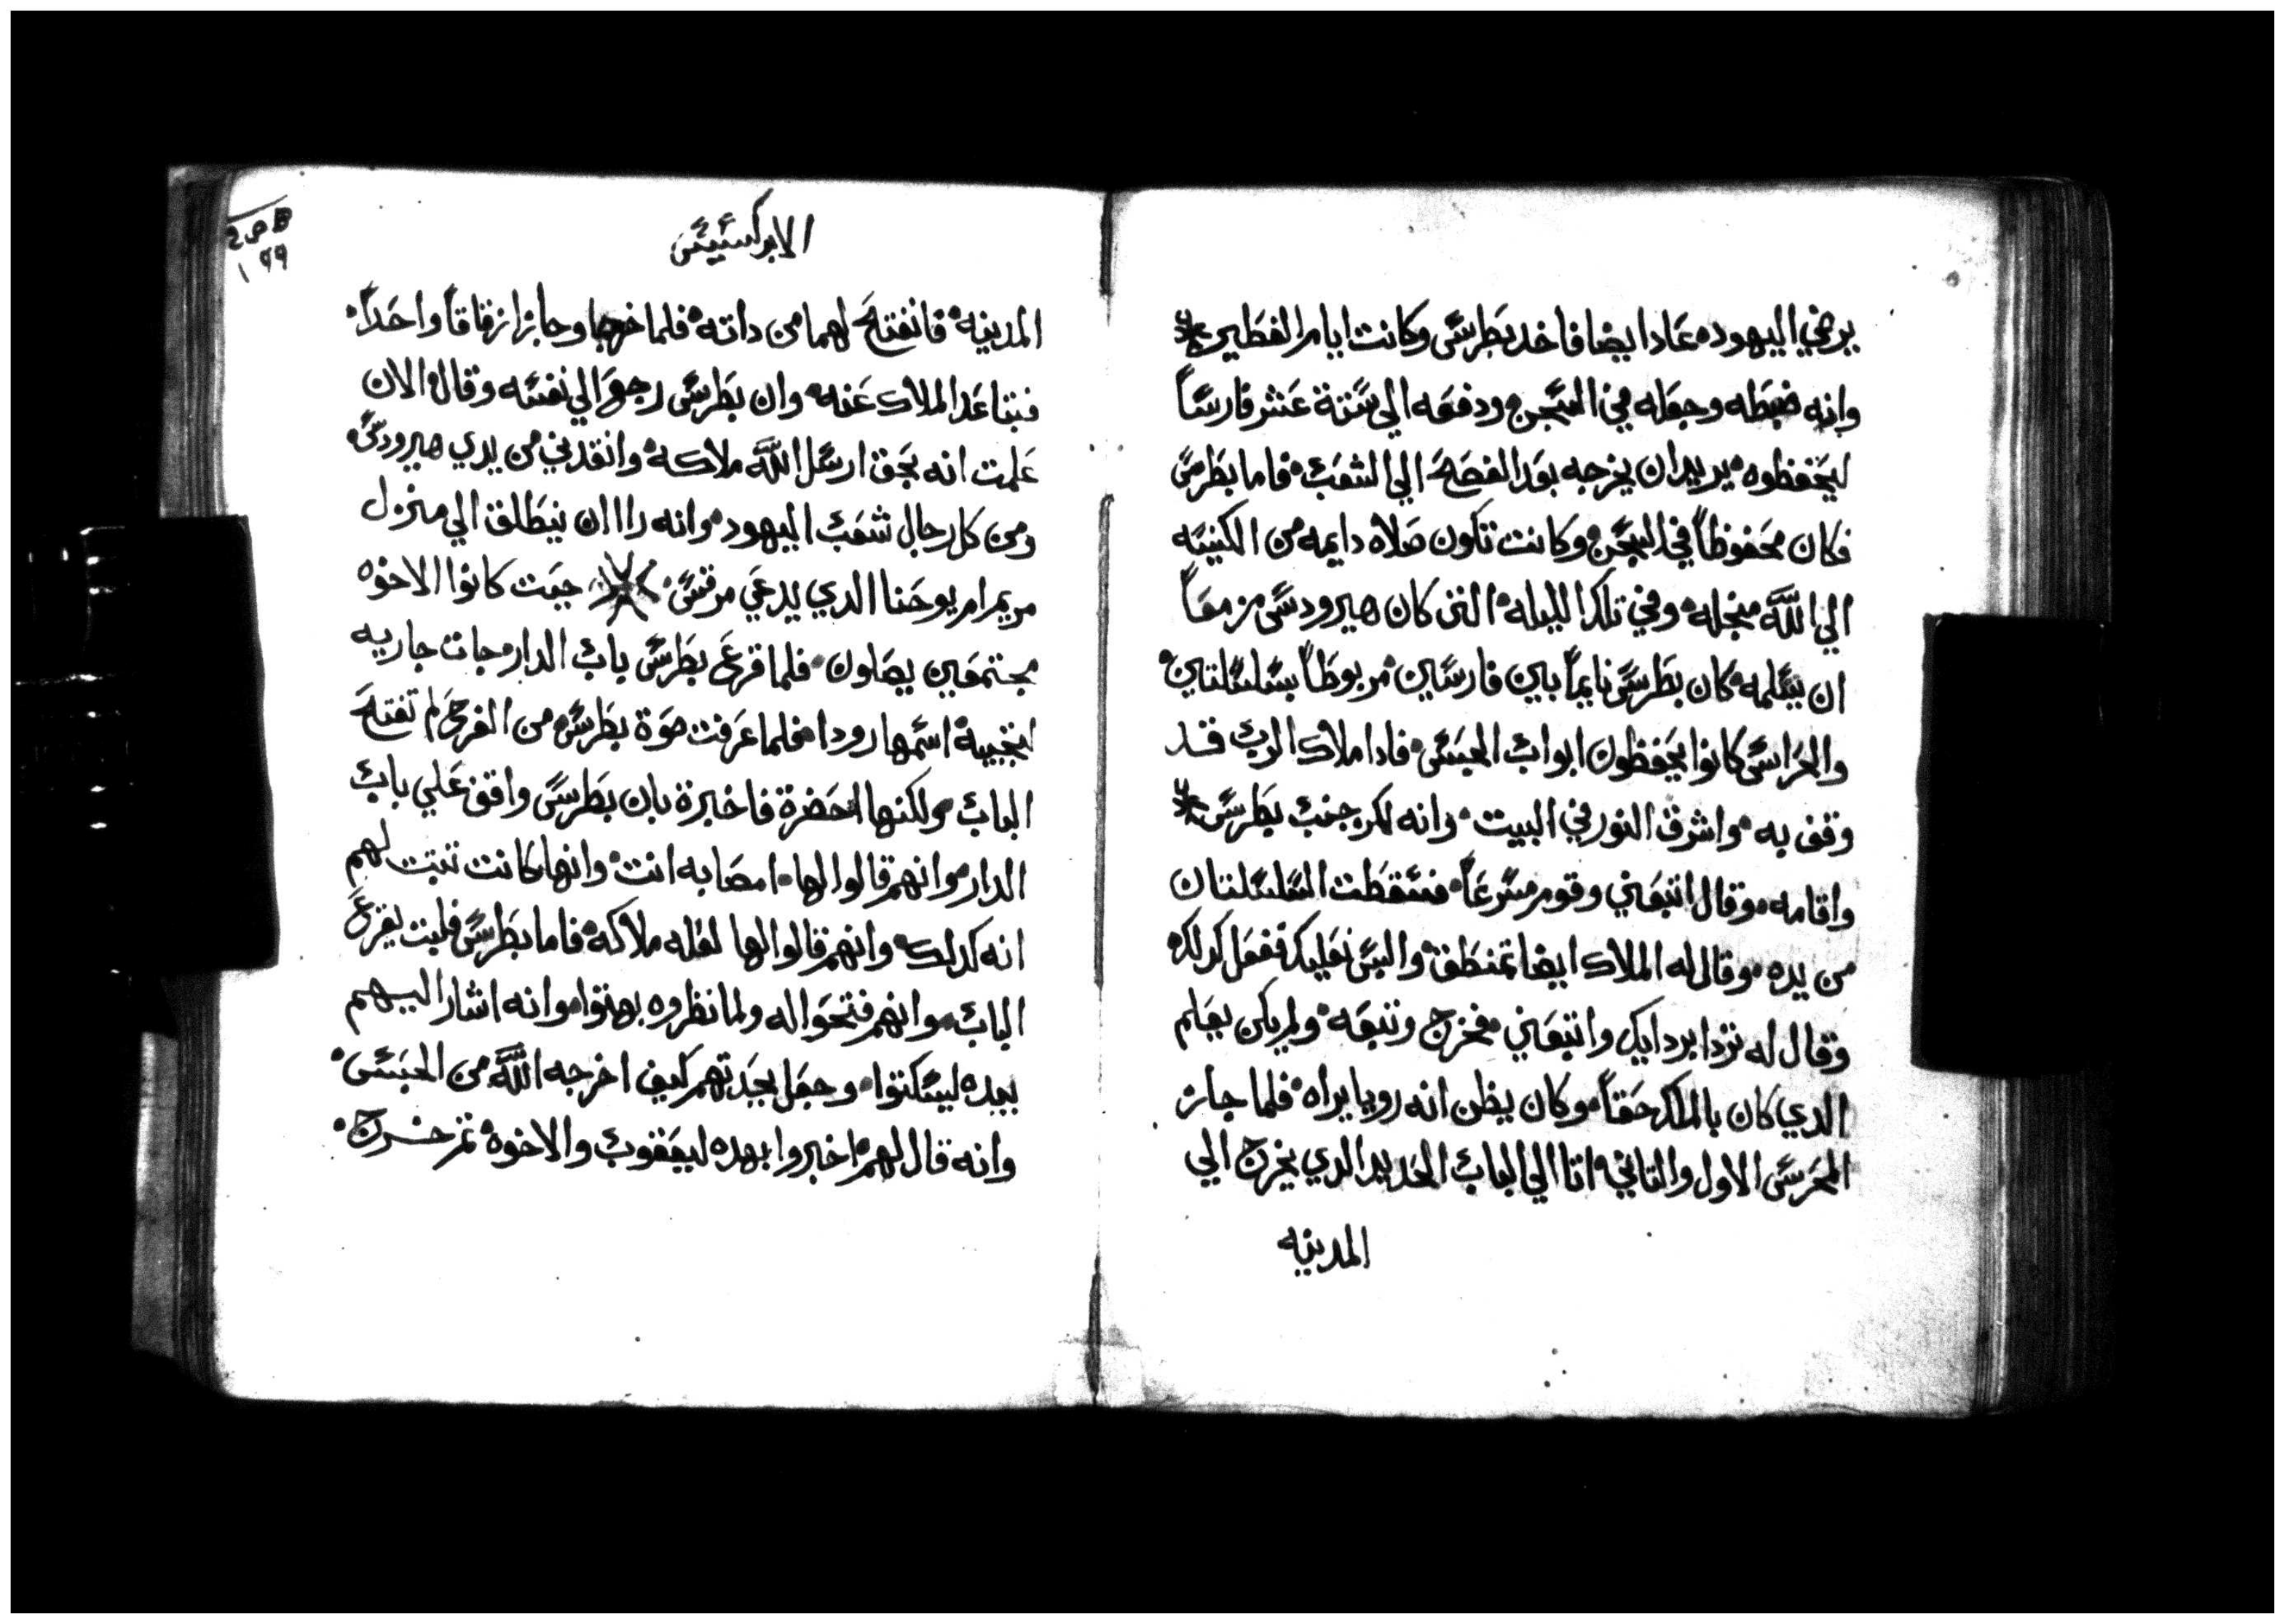 يرضي اليهود عاد ايضا فاخد بطرس وكانت ايام الفطير
وانه ضبطه وجعله في السجن ودفعه الي ستة عشر فارساً
ليحفظوه يريد ان يخرجه بعد الفصح الي الشعب فاما بطرس
فكان محفوظاً في السجن وكانت تكون صلاه دايمه من الكنيسه
الي الله منجله وفي تلك الليله التي كان هيرودس مزمعاً
ان يسلمه كان بطرس نايماً بين فارسين مربوطاً بسلسلتين
والحراس كانوا يحفظون ابواب الحبس فادا ملاك الرب قد
وقف به واشرق النور في البيت وانه لكز جنب بطرس
واقامه وقال اتبعني وقوم مسرعاً فسقطت السلسلتان
من يده وقال له الملاك ايضا تمنطق والبس نعليك ففعل كدلك
وقال له تردا بردايك واتبعني فخرج وتبعه ولم يكن يعلم
الدي كان بالملك حقاً وكان يظن انه رويا يراه فلما جاز
المحرس الاول والتاني اتا الي الباب الحديد الدي يخرج الي
المدينه
الابركسيس
١٩٩
المدينه فانفتح لهما من داته فلما خرجا وجازا زقاقاً واحداً
فبتاعد الملاك عنه وان بطرس رجع الي نفسه وقال الان
علمت انه بحق ارسل الله ملاكه وانقدني من يدي هيرودس
ومن كل رجال شعب اليهود وانه راا ان ينطلق الي منزل
مريم ام يوحنا الدي يدعي مرقس حيت كانوا الاخوه
مجتمعين يصلون فلما قرع بطرس باب الدار جات جاريه
لتجيبه اسمها رودا فلما عرفت صوة بطرس من الفرح لم تفتح
الباب ولكنها احضرة فاخبرة بان بطرس واقف علي باب
الدار وانهم قالوا لها امصابه انت وانها كانت تتبت لهم
انه كدلك وانهم قالوا لها لعله ملاكه فاما بطرس فلبت يقرع
الباب وانهم فتحوا له ولما نظروه بهتوا وانه اشار اليهم
بيده ليسكتوا وجعل يحدتهم كيف اخرجه الله من الحبس
وانه قال لهم اخبروا بهده ليعقوب والاخوه تم خرج